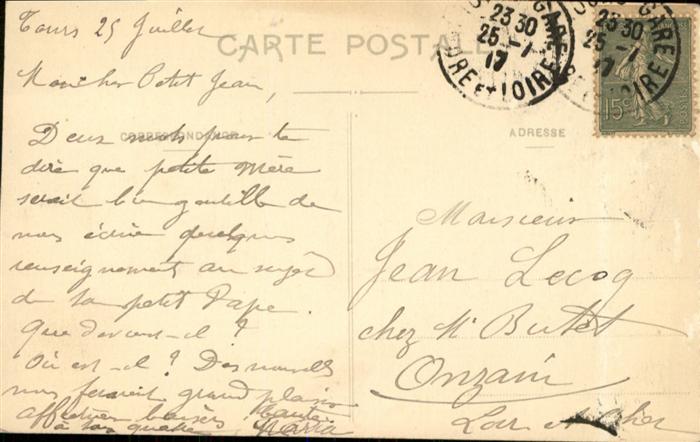 Tours 25 Juillet
CARTE POSTALE
Mon cher Petit Jean,
CORRESPONDANCE
Deux mots pour te
dire que petite Mère
serait bien gentille de
nous écrire quelques
renseignement au sujet
de ton petit Papa.
Que devient-il ?
Où est-il ? Des nouvelles
nous feraient grand plaisir
affectueux baisers
à tous quatre
Tante
Maria
23 30
25 - 7
17
GARE
INDRE ET LOIRE
23 30
25 - 7
17
GARE
LOIRE
15c
ADRESSE
Monsieur
Jean Lecoq
chez Mr Butet
Onzain
Loir et Cher